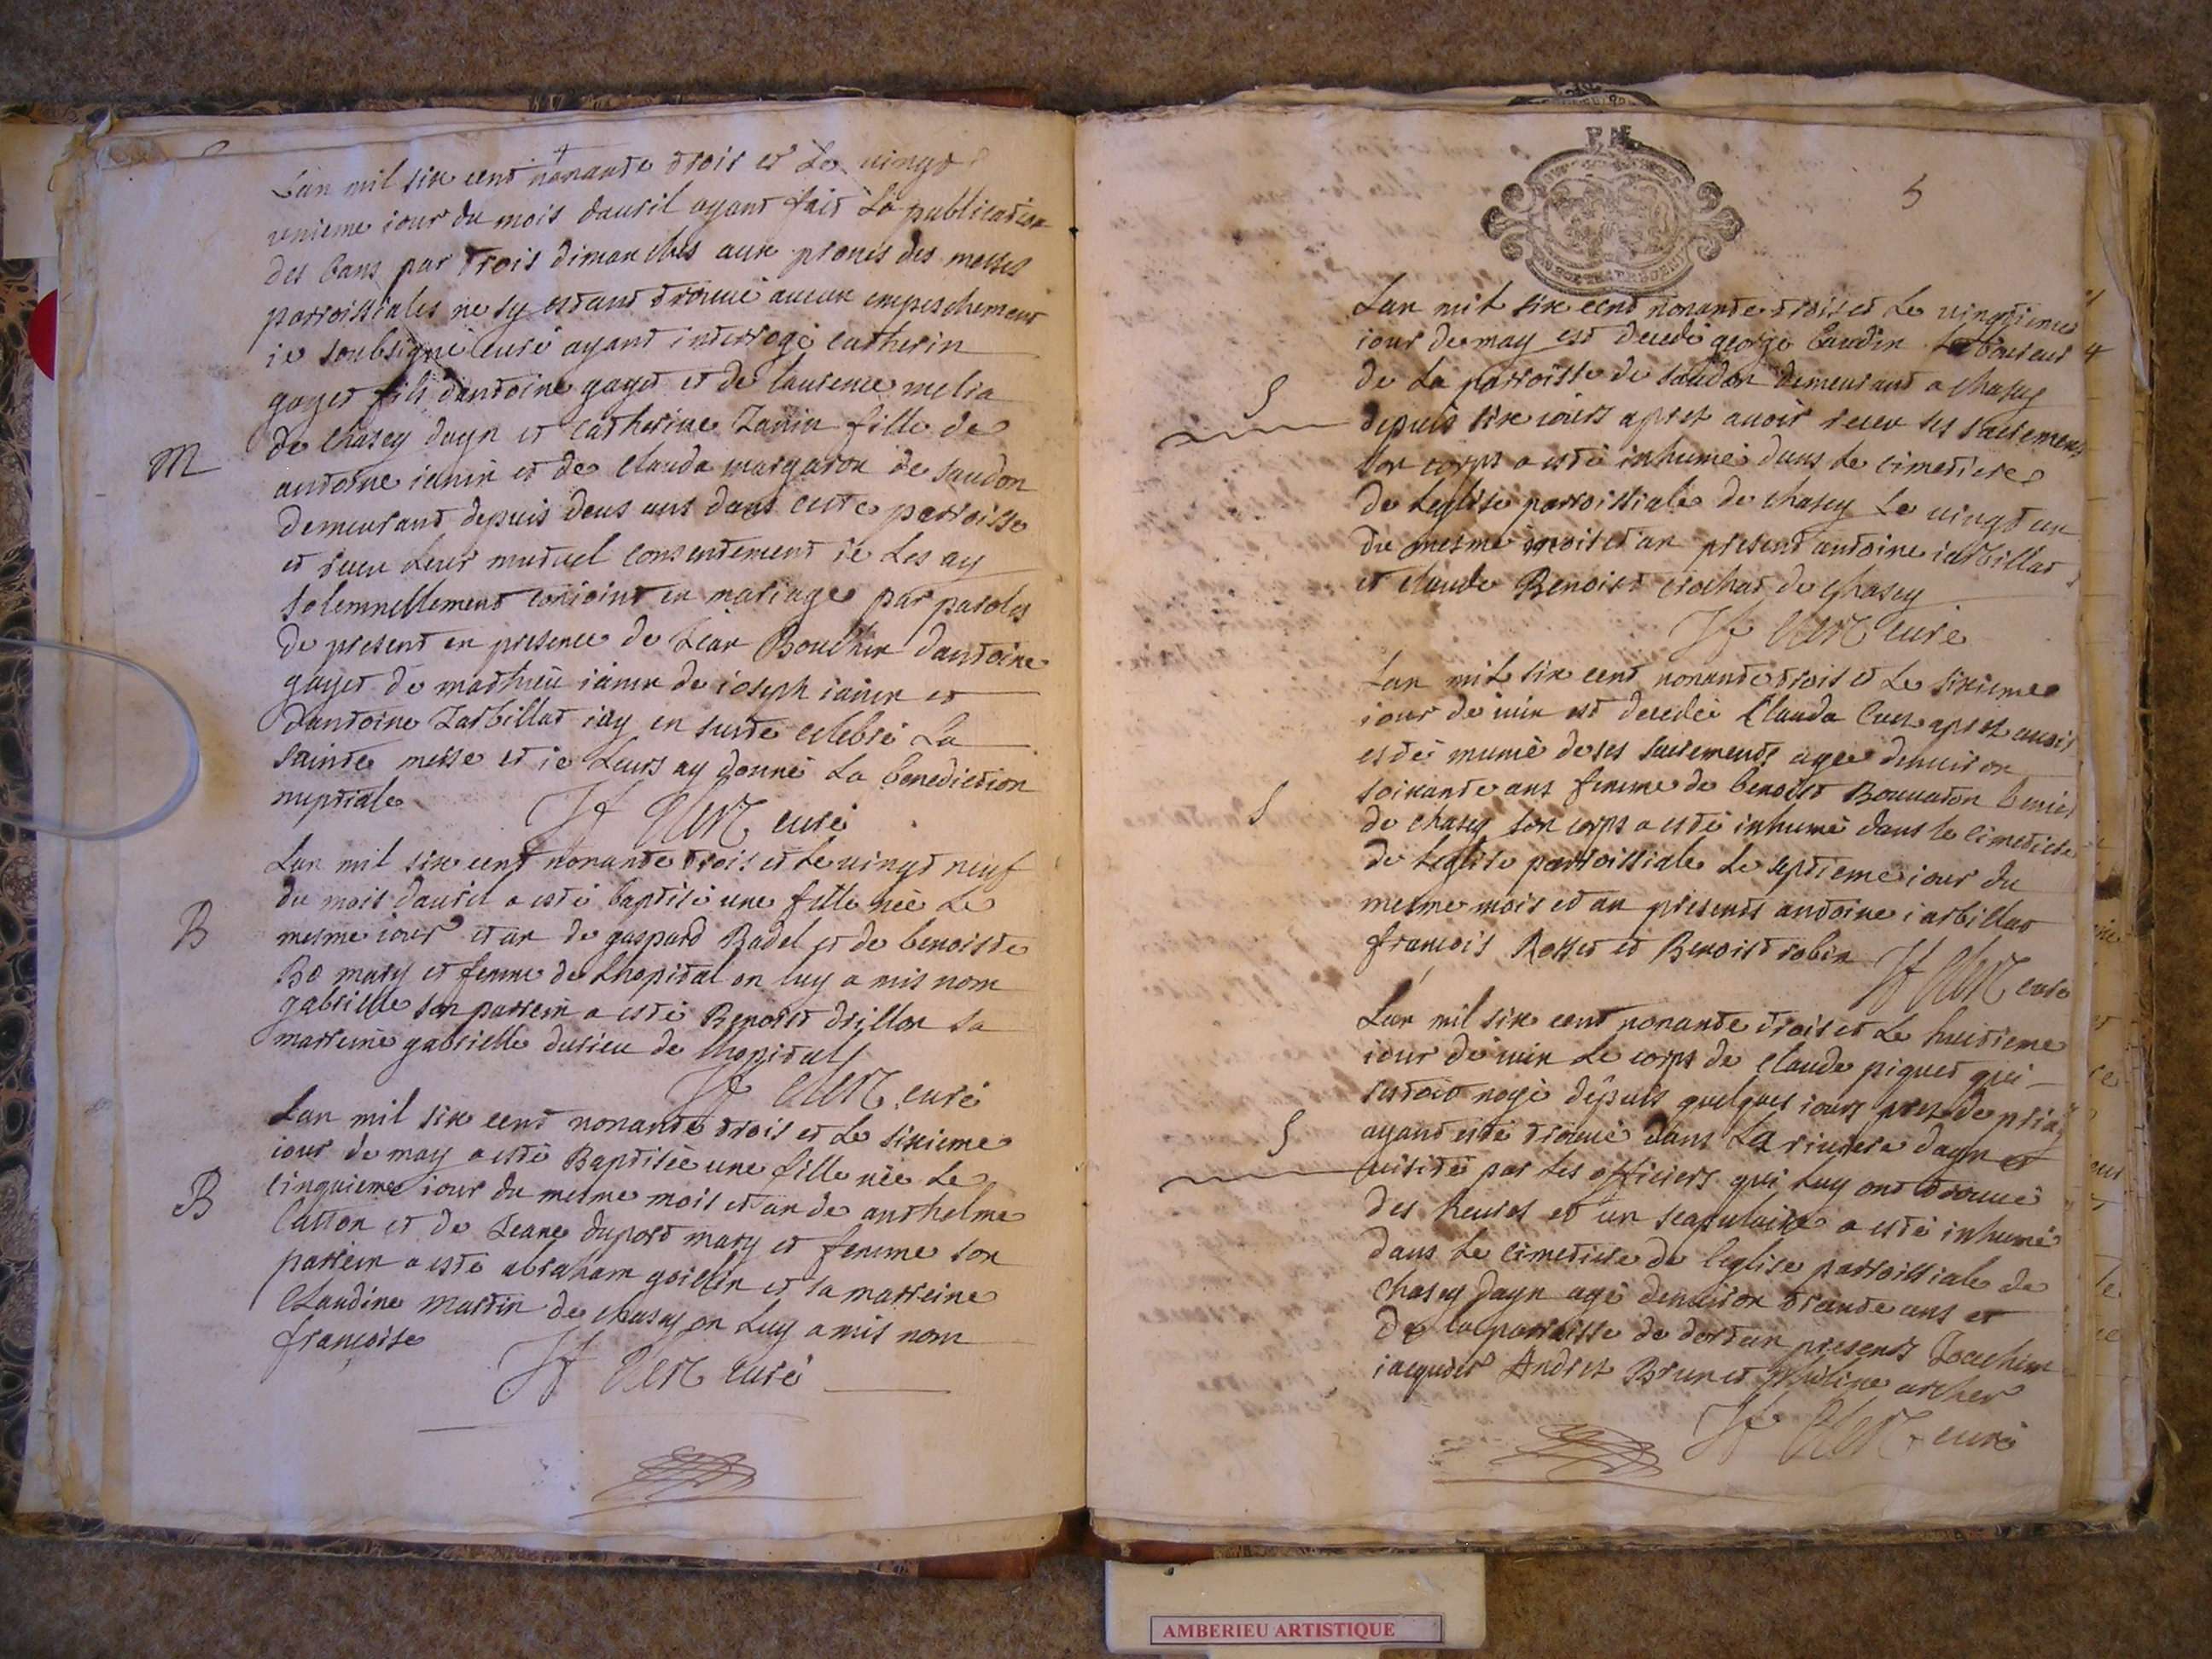 Lan mil six cent nonante trois et Le vingt
unieme iour du mois dauril ayant fait La publication
des bans par trois dimanches aux prones des messes
parroissiales ne sy estant trouué aucun empeschement
ie soubsigné curé ayant interrogé catherin
gayet fils dantoine gayet et de laurence melia
M
de chasey dayn et catherine Janin fille de
antoine ianin et de clauda margaron de saudon
demeurant depuis deus ans dans cette parroisse
et receu Leur mutuel consentement ie Les ay
solemnellement conioint en mariage par paroles
de present en presence de Jean Bouchin dantoine
gayet de mathieu ianin de ioseph ianin et
dantoine Jarbillat iay en suite celebré La
sainte messe et ie Leurs ay donné La benediction
nuptiale
curé
Lan mil six cent nonante trois et Le vingt neuf
du mois dauril a esté baptisé une fille née Le
B
mesme iour et an de gaspard Badel et de benoiste
Bo mary et femme de Lhopital on luy a mis nom
gabrielle son parrein a esté Benoist drillon sa
marreine gabrielle dusieu de Lhopital
curé
Lan mil six cent nonante trois et Le sixieme
iour de may a esté Baptisée une fille née Le
B
cinquieme iour du mesme mois et an de anthelme
Catton et de Jeane duport mary et femme son
parrein a esté abraham goiffin et sa marreine
Claudine martin de chasey on Luy a mis nom
françoise
curé
5
Lan mil six cent nonante trois et Le vingtieme
iour de may est decedé george baudin Laboureur
de La parroisse de saudon demeurant a chasey
S
depuis six iours apres auoir receu ses sacremens
son corps a esté inhumé dans Le cimetiere
de Leglise parroissiale de chasey Le vingt un
du mesme mois et an present antoine iarbillat
et claude Benoist crochat de chasey
curé
Lan mil six cent nonante trois et Le sixieme
iour de iuin est decedée Clauda apres auoir
esté munie de ses sacrements agee denuiron
soixante ans femme de benoist Bouuaton
S
de chasey son corps a esté inhumé dans le cimetiere
de Leglise parroissiale Le septieme iour du
mesme mois et an presents antoine iarbillat
françois Rosset et Benoist robin
curé
Lan mil six cent nonante trois et Le huitieme
iour de iuin Le corps de Claude piquet qui
sestoit noyé depuis quelques iours pres de
S
ayant esté trouué dans La riuiere dayn et
uisité par Les officiers qui Luy ont trouué
des heures et un scapulaire a esté inhumé
dans Le cimetiere de leglise parroissiale de
chasey dayn agé denuiron trante ans et
De la parroisse de dortan presents Joachim
iacquier Andret Brun et Philipe archer
curé
AMBERIEU ARTISTIQUE